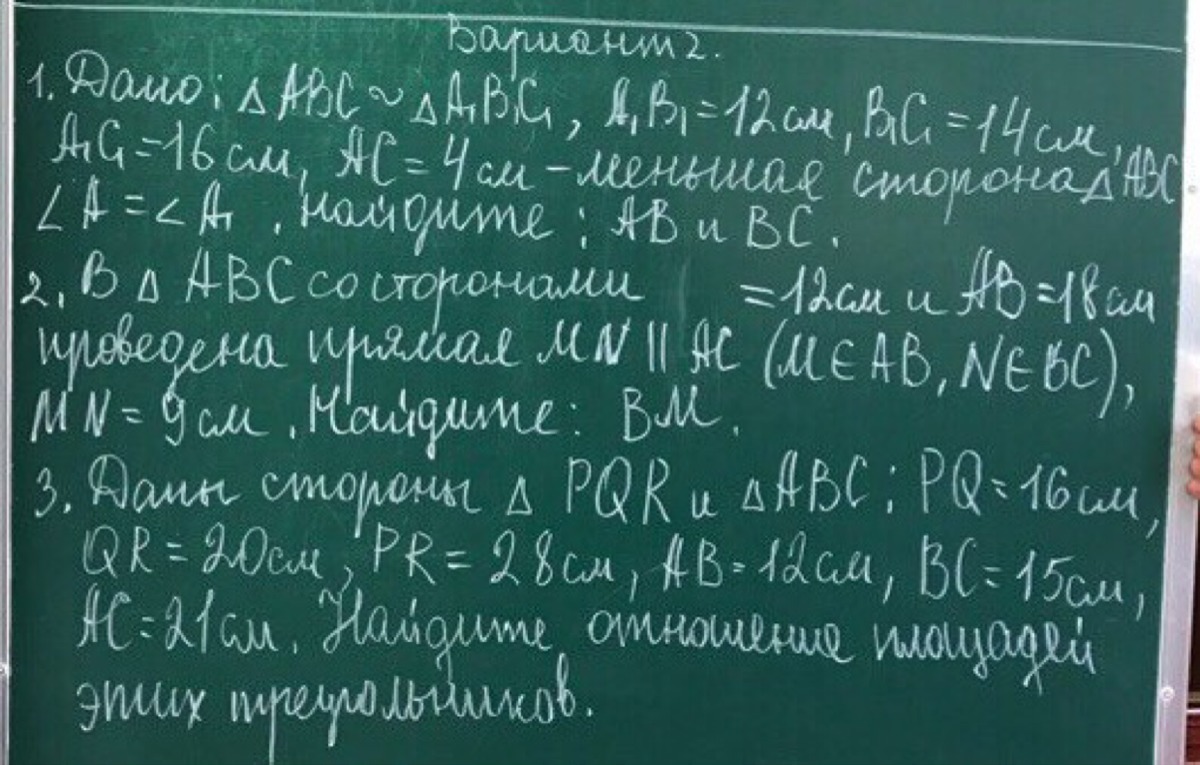 Вариант 2.
1. Дано: △ ABC ~ △ A₁B₁C₁, A₁B₁ = 12 см, B₁C₁ = 14 см,
A₁C₁ = 16 см, AC = 4 см – меньшая сторона △ ABC
∠A = ∠A₁. Найдите: AB и BC.
2. В △ ABC со сторонами = 12 см и AB = 18 см
проведена прямая MN || AC (M ∈ AB, N ∈ BC),
MN = 9 см. Найдите: BM.
3. Даны стороны △ PQR и △ ABC: PQ = 16 см,
QR = 20 см, PR = 28 см, AB = 12 см, BC = 15 см,
AC = 21 см. Найдите отношение площадей
этих треугольников.